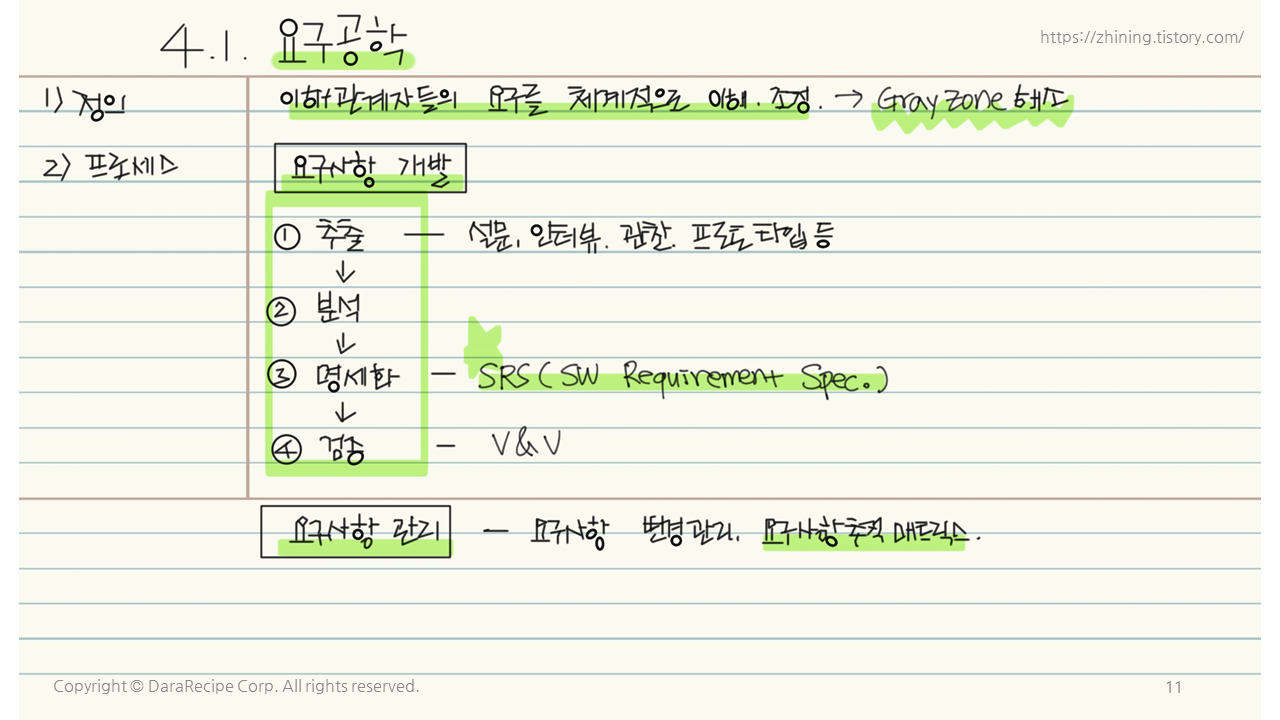 4.1. 요구공학
https://zhining.tistory.com/
1) 정의
이해관계자들의 요구를 체계적으로 이해. 조정. → Gray zone 해소
2) 프로세스
요구사항 개발
① 추출 — 설문, 인터뷰. 관찰. 프로토타입 등
↓
② 분석
↓
③ 명세화 — SRS (SW Requirement Spec.)
↓
④ 검증 — V&V
요구사항 관리 — 요구사항 변경관리, 요구사항추적 매트릭스.
Copyright © DaraRecipe Corp. All rights reserved.
11